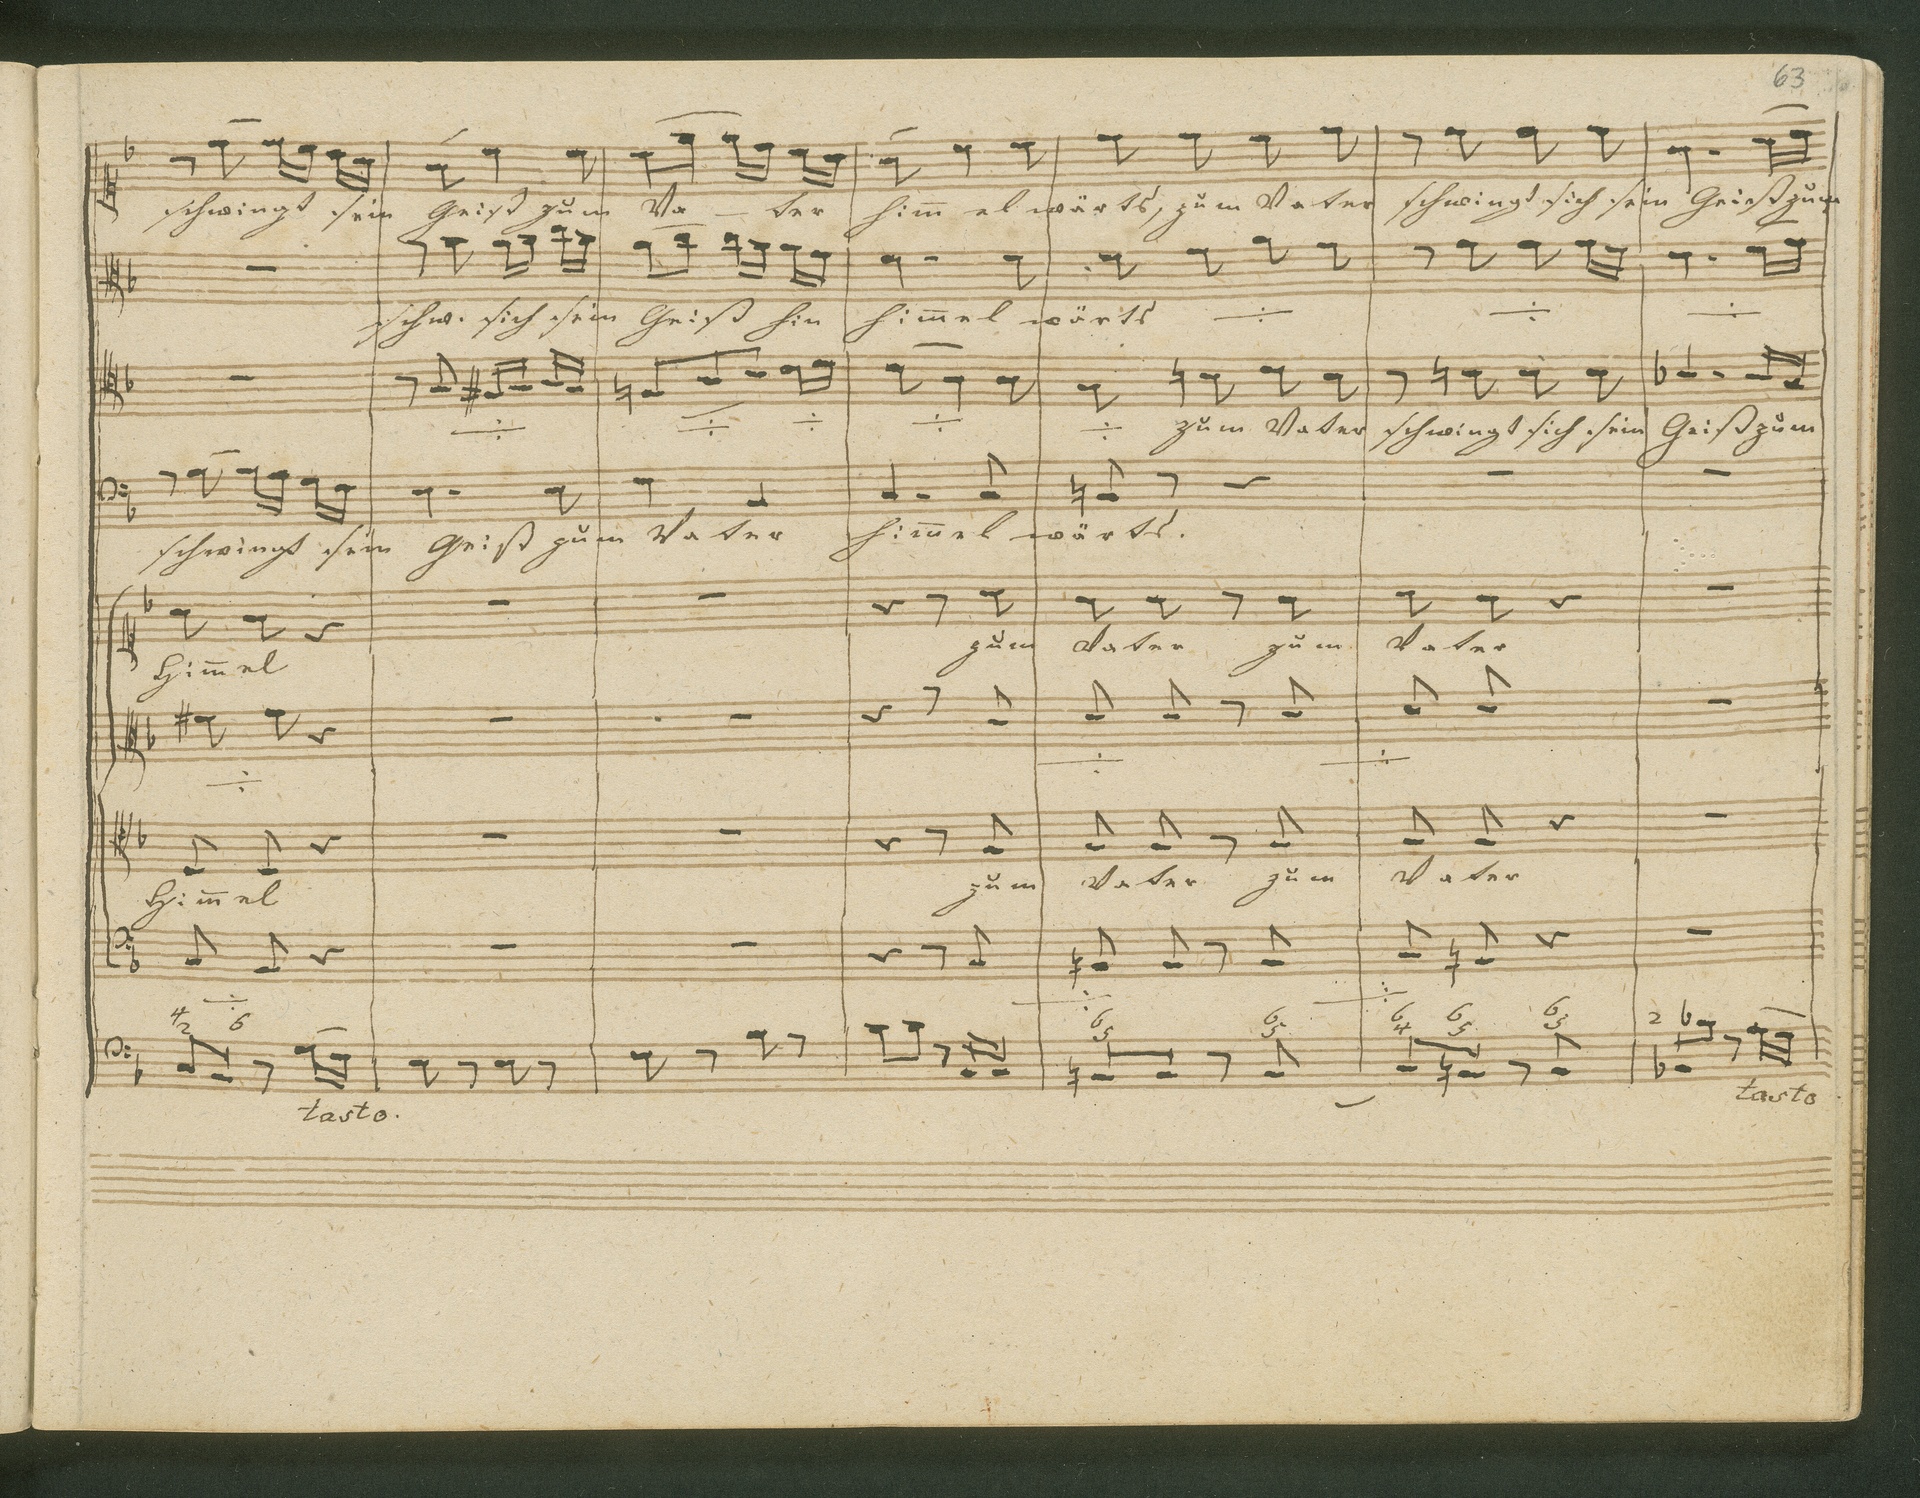 63
schwingt sein Geist zum Va - ter him̅ el wärts, zum Vater schwingt sich sein Geist zum
schw. sich sein Geist hin him̅el wärts
zum Vater schwingt sich sein Geist zum
schwingt sein Geist zum Vater him̅el wärts.
Him̅el zum Vater zum Vater
Him̅el zum Vater zum Vater
4 2 6 6 5 6 5 6 4 6 5 6 5 2
tasto. tasto